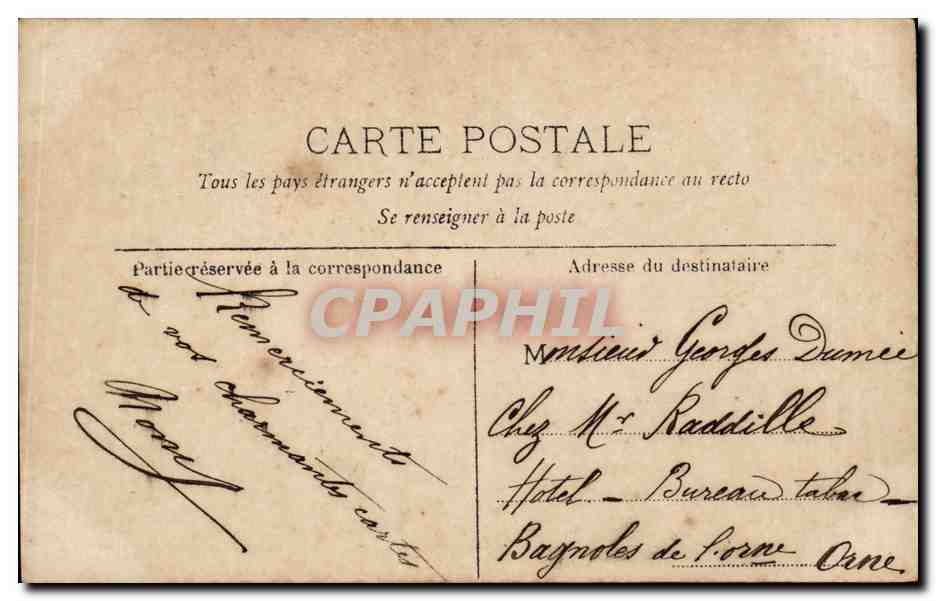 CARTE POSTALE
Tous les pays étrangers n'acceptent pas la correspondance au recto
Se renseigner à la poste
Partie réservée à la correspondance
Remerciements
de vos charmantes cartes
Adresse du destinataire
Monsieur Georges Dumée
Chez Mr Raddille
Hotel - Bureau tabac -
Bagnoles de l'orne Orne
CPAPHIL